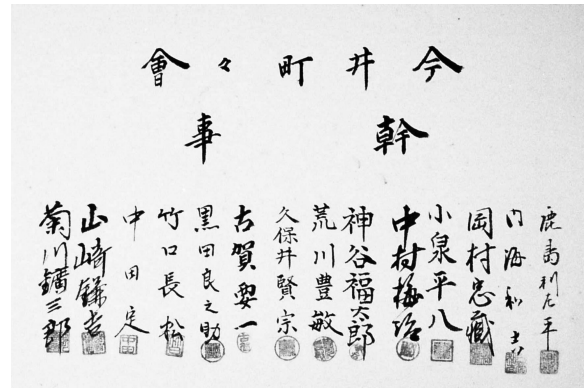 今井町々會
幹事
鹿島利左平
内海和吉
岡村忠藏
小泉平八
中村梅治
神谷福太郎
荒川豊敏
久保井賢宗
古賀要一
黒田良之助
竹口長松
中田定
山崎鎌吉
菊川鑛三郎